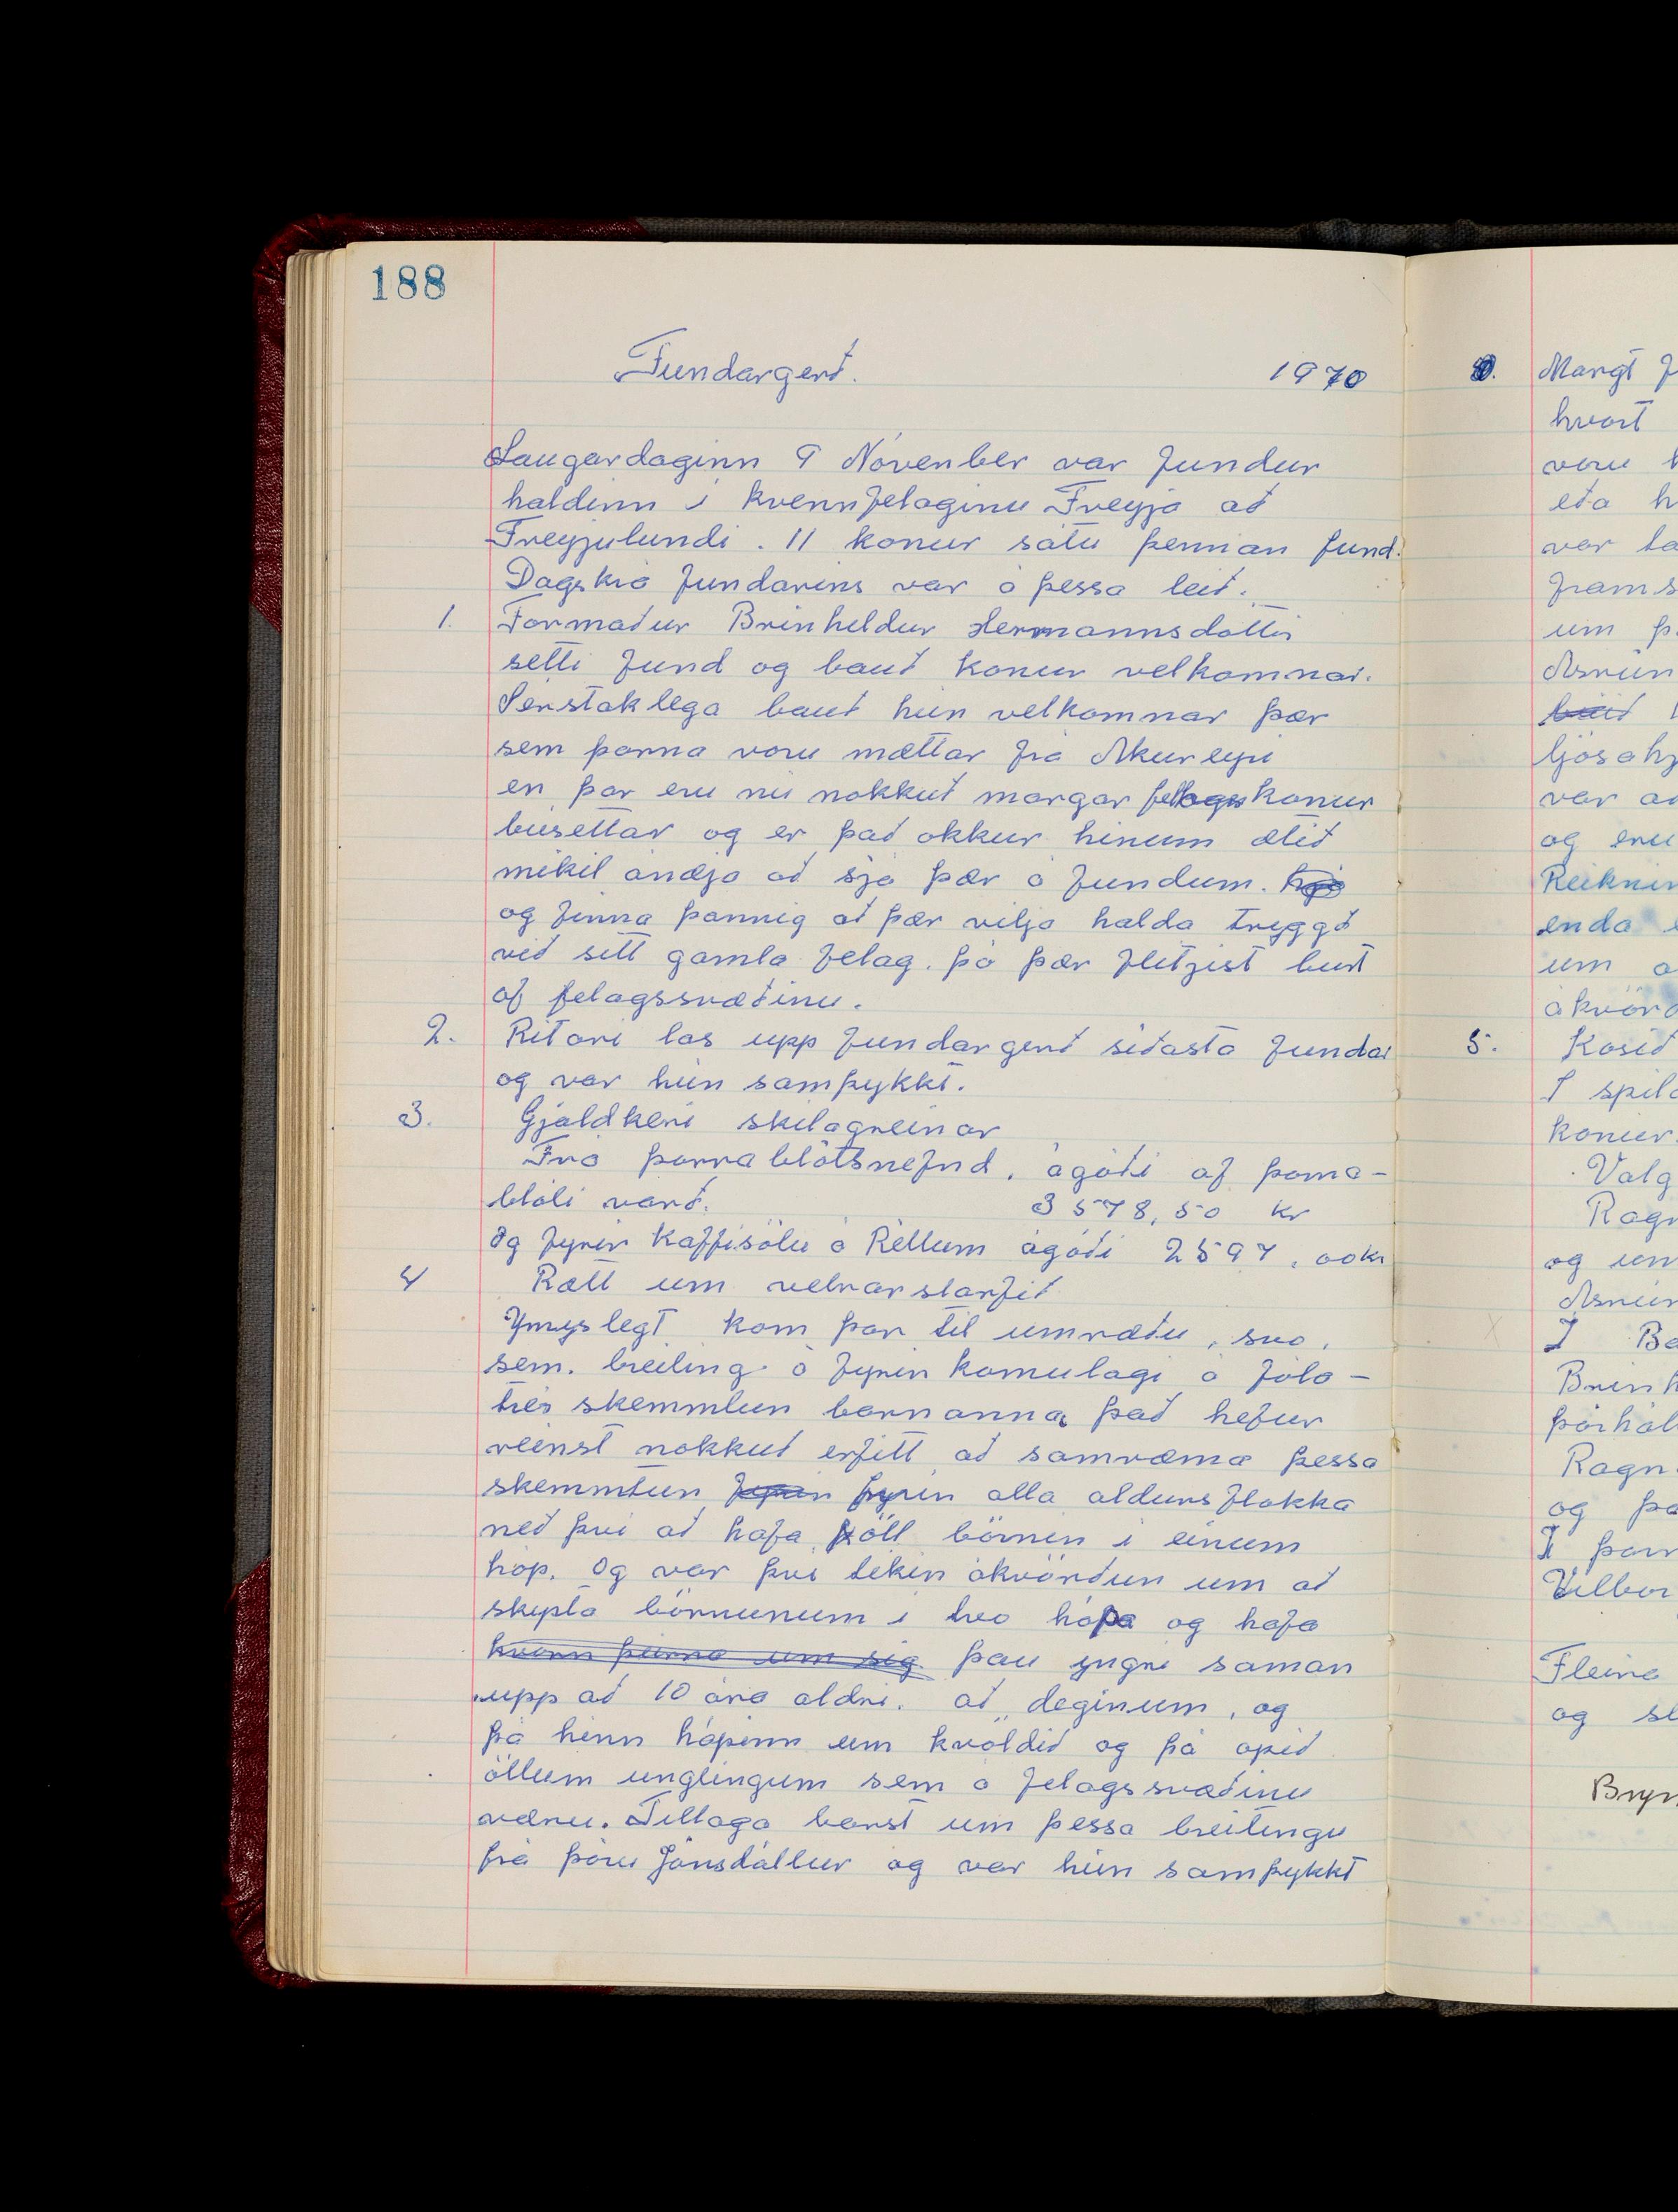 188
Fundargerð. 1970
Laugardaginn 9 Nóvenber var fundur
haldinn í kvennfelaginu Freyja að
Freyjulundi. 11 konur sátu þennan fund.
Dagskrá fundarins var á þessa leið.
1. Formaður Brinhildur Hermannsdóttir
setti fund og bauð konur velkomnar.
Serstaklega bauð hún velkomnar þær
sem þarna voru mættar frá Akureyri
en þar eru nú nokkuð margar felagskonur
búsettar og er það okkur hinum ætíð
mikil ánæja að sjá þær á fundum.
og finna þannig að þær vilja halda tryggð
við sitt gamla felag. þó þær flitjist burt
af felagssvæðinu.
2. Ritari las upp fundargerð síðasta fundar
og var hún samþykkt.
3. Gjaldkeri skilagreinar
Frá þorrablótsnefnd. ágóði af þorra-
blóti varð. 3578,50 kr
Og fyrir kaffisölu á Réttum ágóði 2597,00kr
4 Rætt um vetrarstarfið
Ymyslegt kom þar til umræðu, svo,
sem. breiting á fyrir komulagi á Jóla-
trés skemmtun barnanna það hefur
reinst nokkuð erfitt að samræma þessa
skemmtun fyrir fyrir alla aldursflokka
með því að hafa öll börnin í einum
hóp. Og var því tekin ákvörðun um að
skipta börnunum í tvo hópa og hafa
hvorn þeirra um sig. þau yngri saman
upp að 10 ára aldri. að deginum, og
þá hinn hópinn um kvöldið og þá opið
öllum unglingum sem á felagssvæðinu
væru. Tillaga barst um þessa breitingu
frá þóru Jónsdóttur og var hún samþykkt
Margt
hvort
voru
eða
var
um
var
og eru
enda
um
5. Kosið
Í
konur
og
og
og